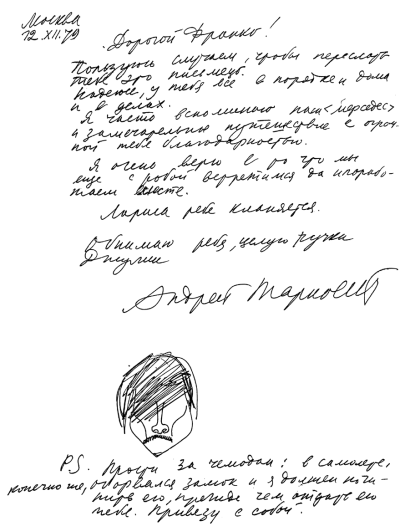 Москва
12.XII.79
Дорогой Франко!
Пользуюсь случаем, чтобы переслать
тебе это письмецо.
Надеюсь, у тебя всё в порядке и дома
и в делах.
Я часто вспоминаю наш <мерседес>
и замечательные путешествие с огром-
ной тебе благодарностью.
Я очень верю в то что мы
еще с тобой встретимся да и порабо-
таем вместе.
Лариса тебе кланяется.
Обнимаю тебя, целую ручки
Джулии
Андрей Тарковский
P.S. Прости за чемодан: в самолете,
конечно же, оторвался замок и я должен почи-
нить его, прежде чем отдать его
тебе. Привезу с собой.